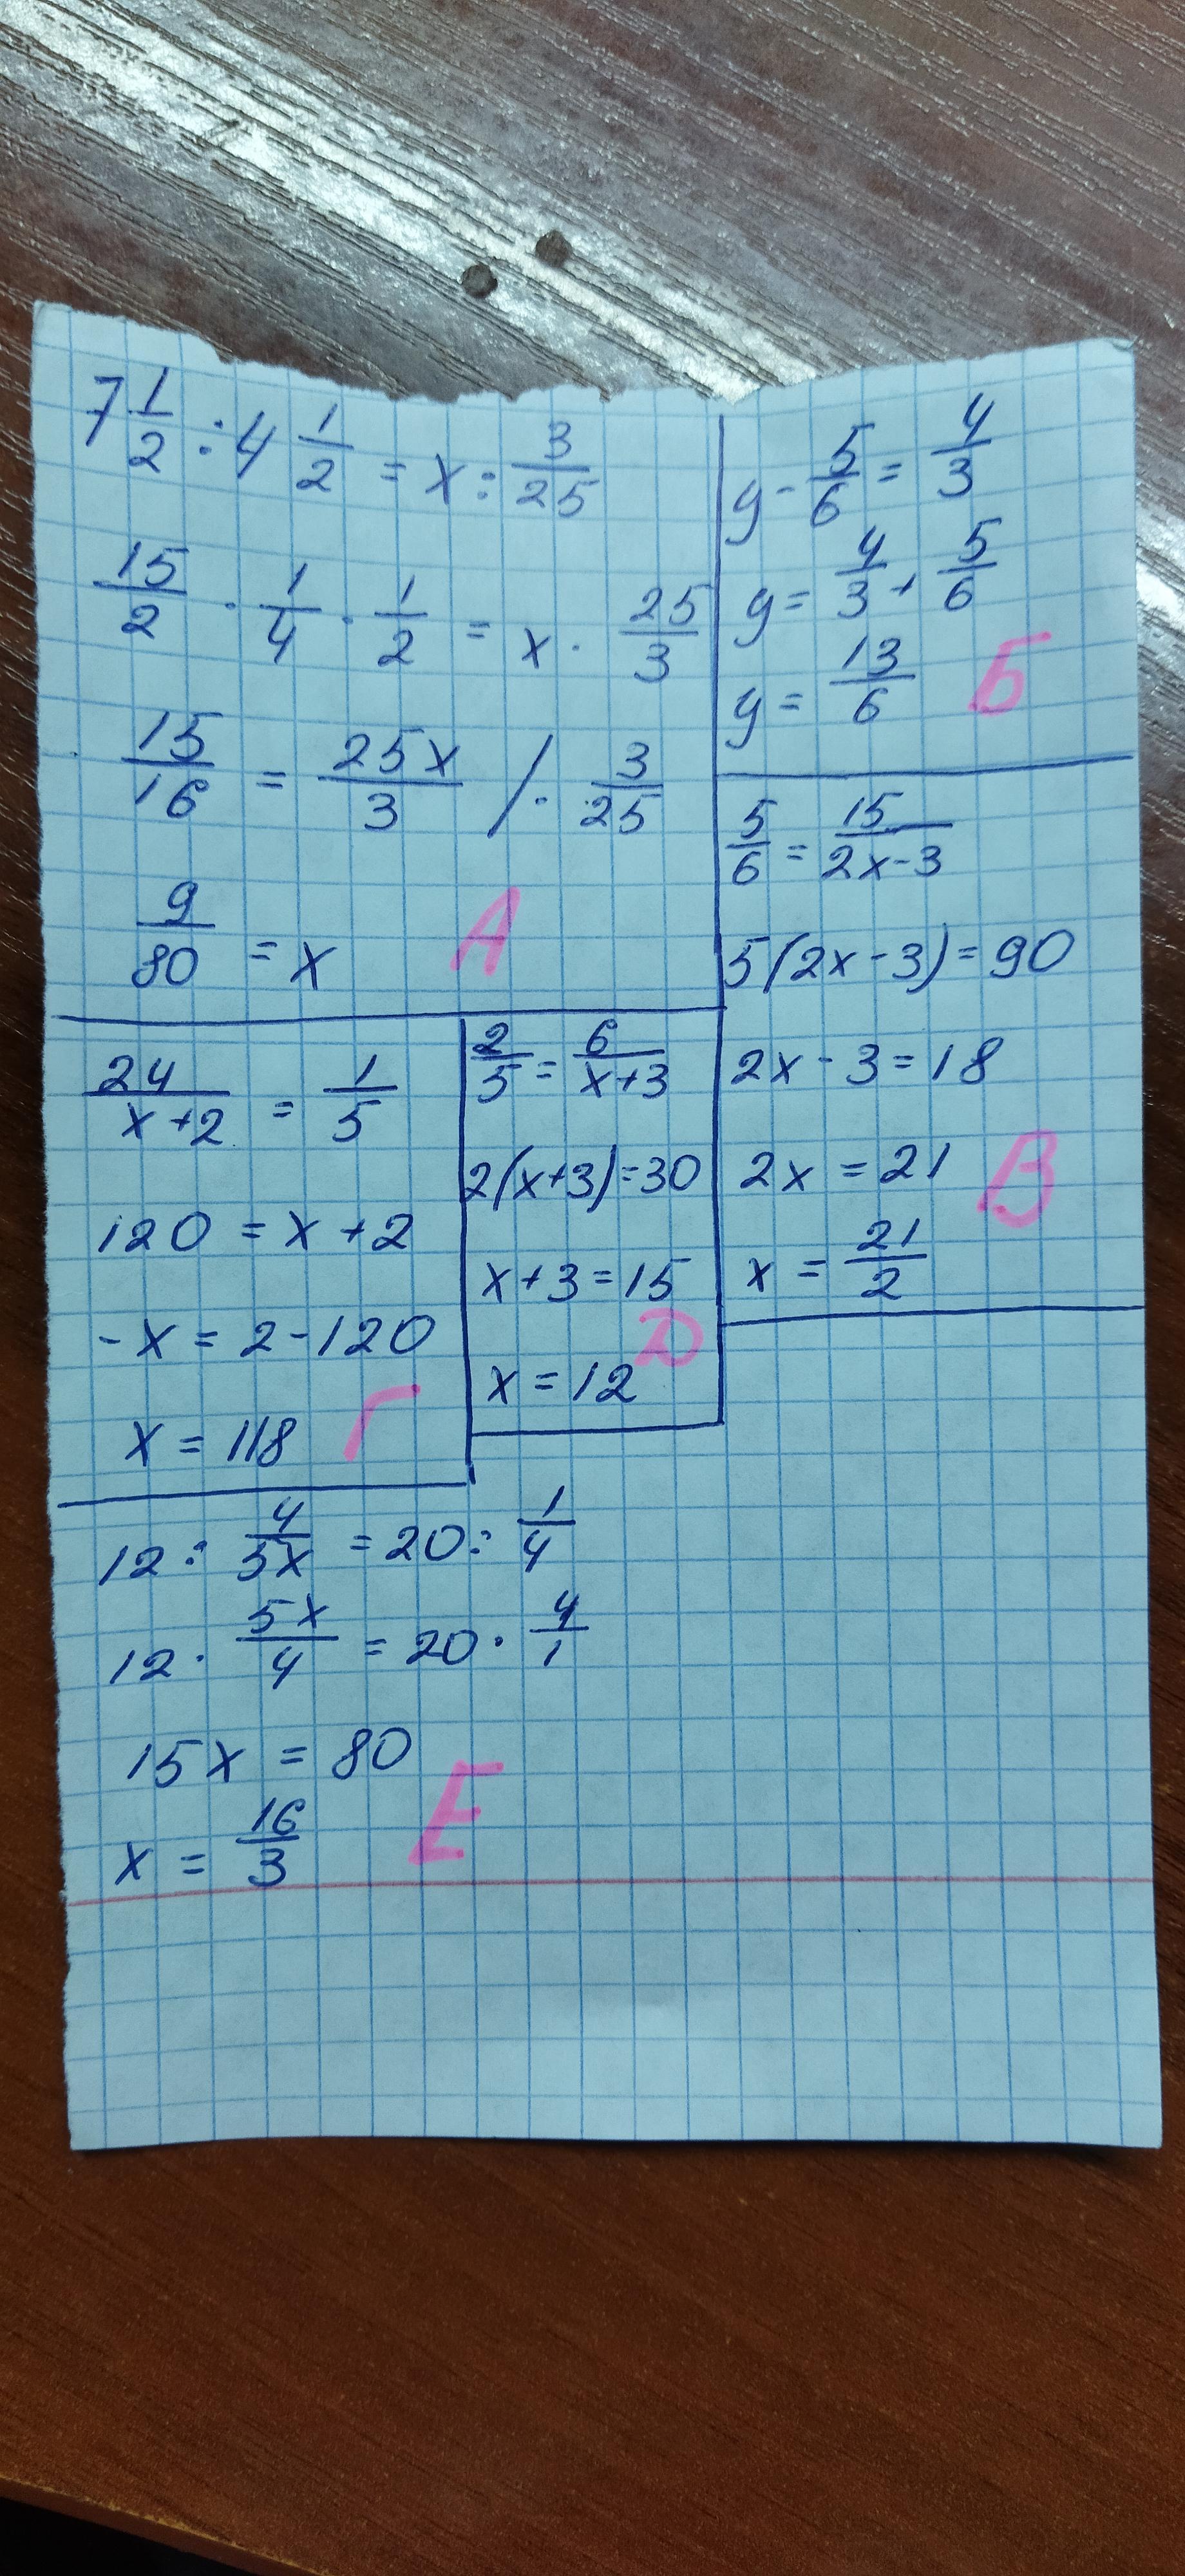 7 1/2 : 4 1/2 = x : 3/25
15/2 · 1/4 · 1/2 = x · 25/3
15/16 = 25x/3 / · 3/25
9/80 = x
А
y - 5/6 = 4/3
y = 4/3 + 5/6
y = 13/6
Б
5/6 = 15/(2x-3)
5(2x-3)=90
2x-3=18
2x=21
x = 21/2
В
24/(x+2) = 1/5
120 = x+2
-x = 2-120
x = 118
Г
2/5 = 6/(x+3)
2(x+3)=30
x+3=15
x=12
D
12 : 4/5x = 20 : 1/4
12 · 5x/4 = 20 · 4/1
15x = 80
x = 16/3
Е